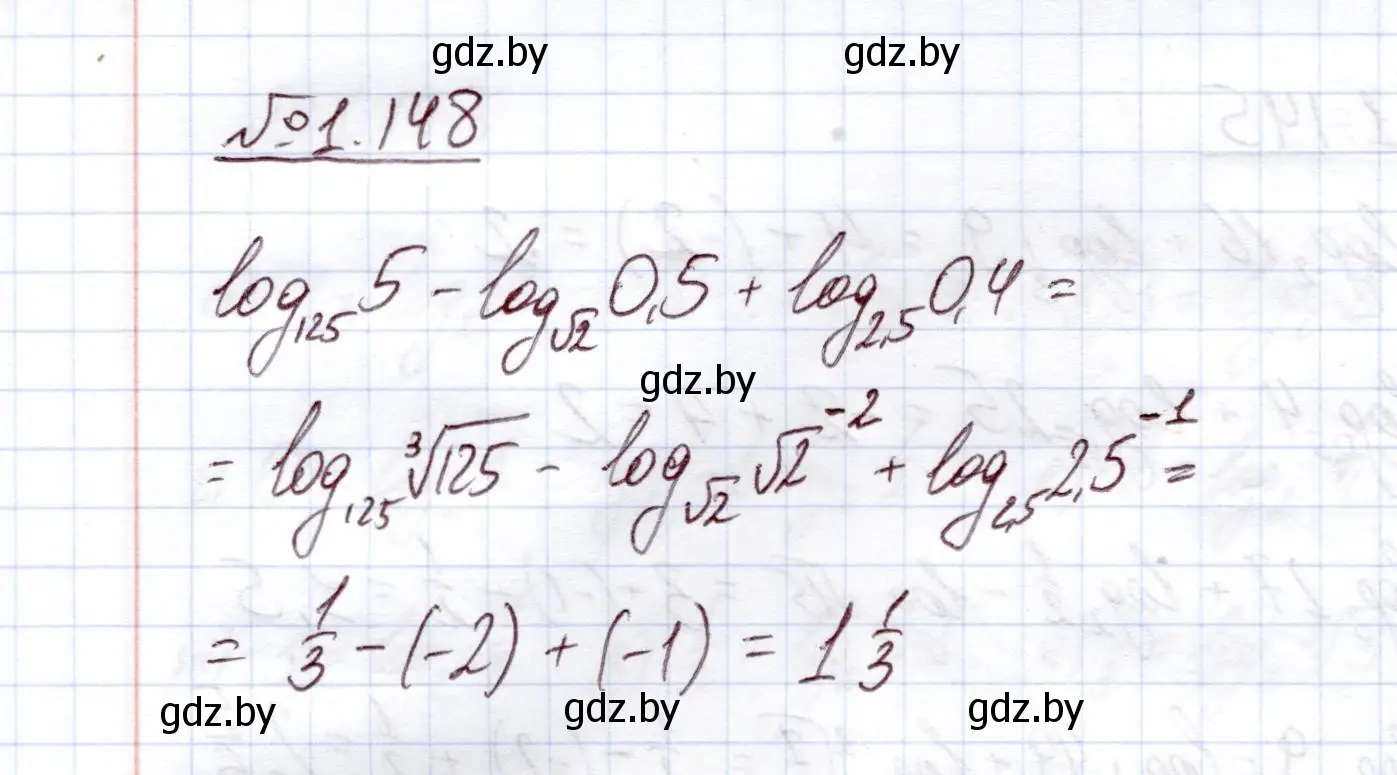 gdz.by gdz.by
№1.148
log₁₂₅ 5 - log_√2 0,5 + log₂,₅ 0,4 =
gdz.by
= log₁₂₅ ³√125 - log_√2 √2⁻² + log₂,₅ 2,5⁻¹ =
= 1/3 - (-2) + (-1) = 1 1/3
gdz.by gdz.by gdz.by